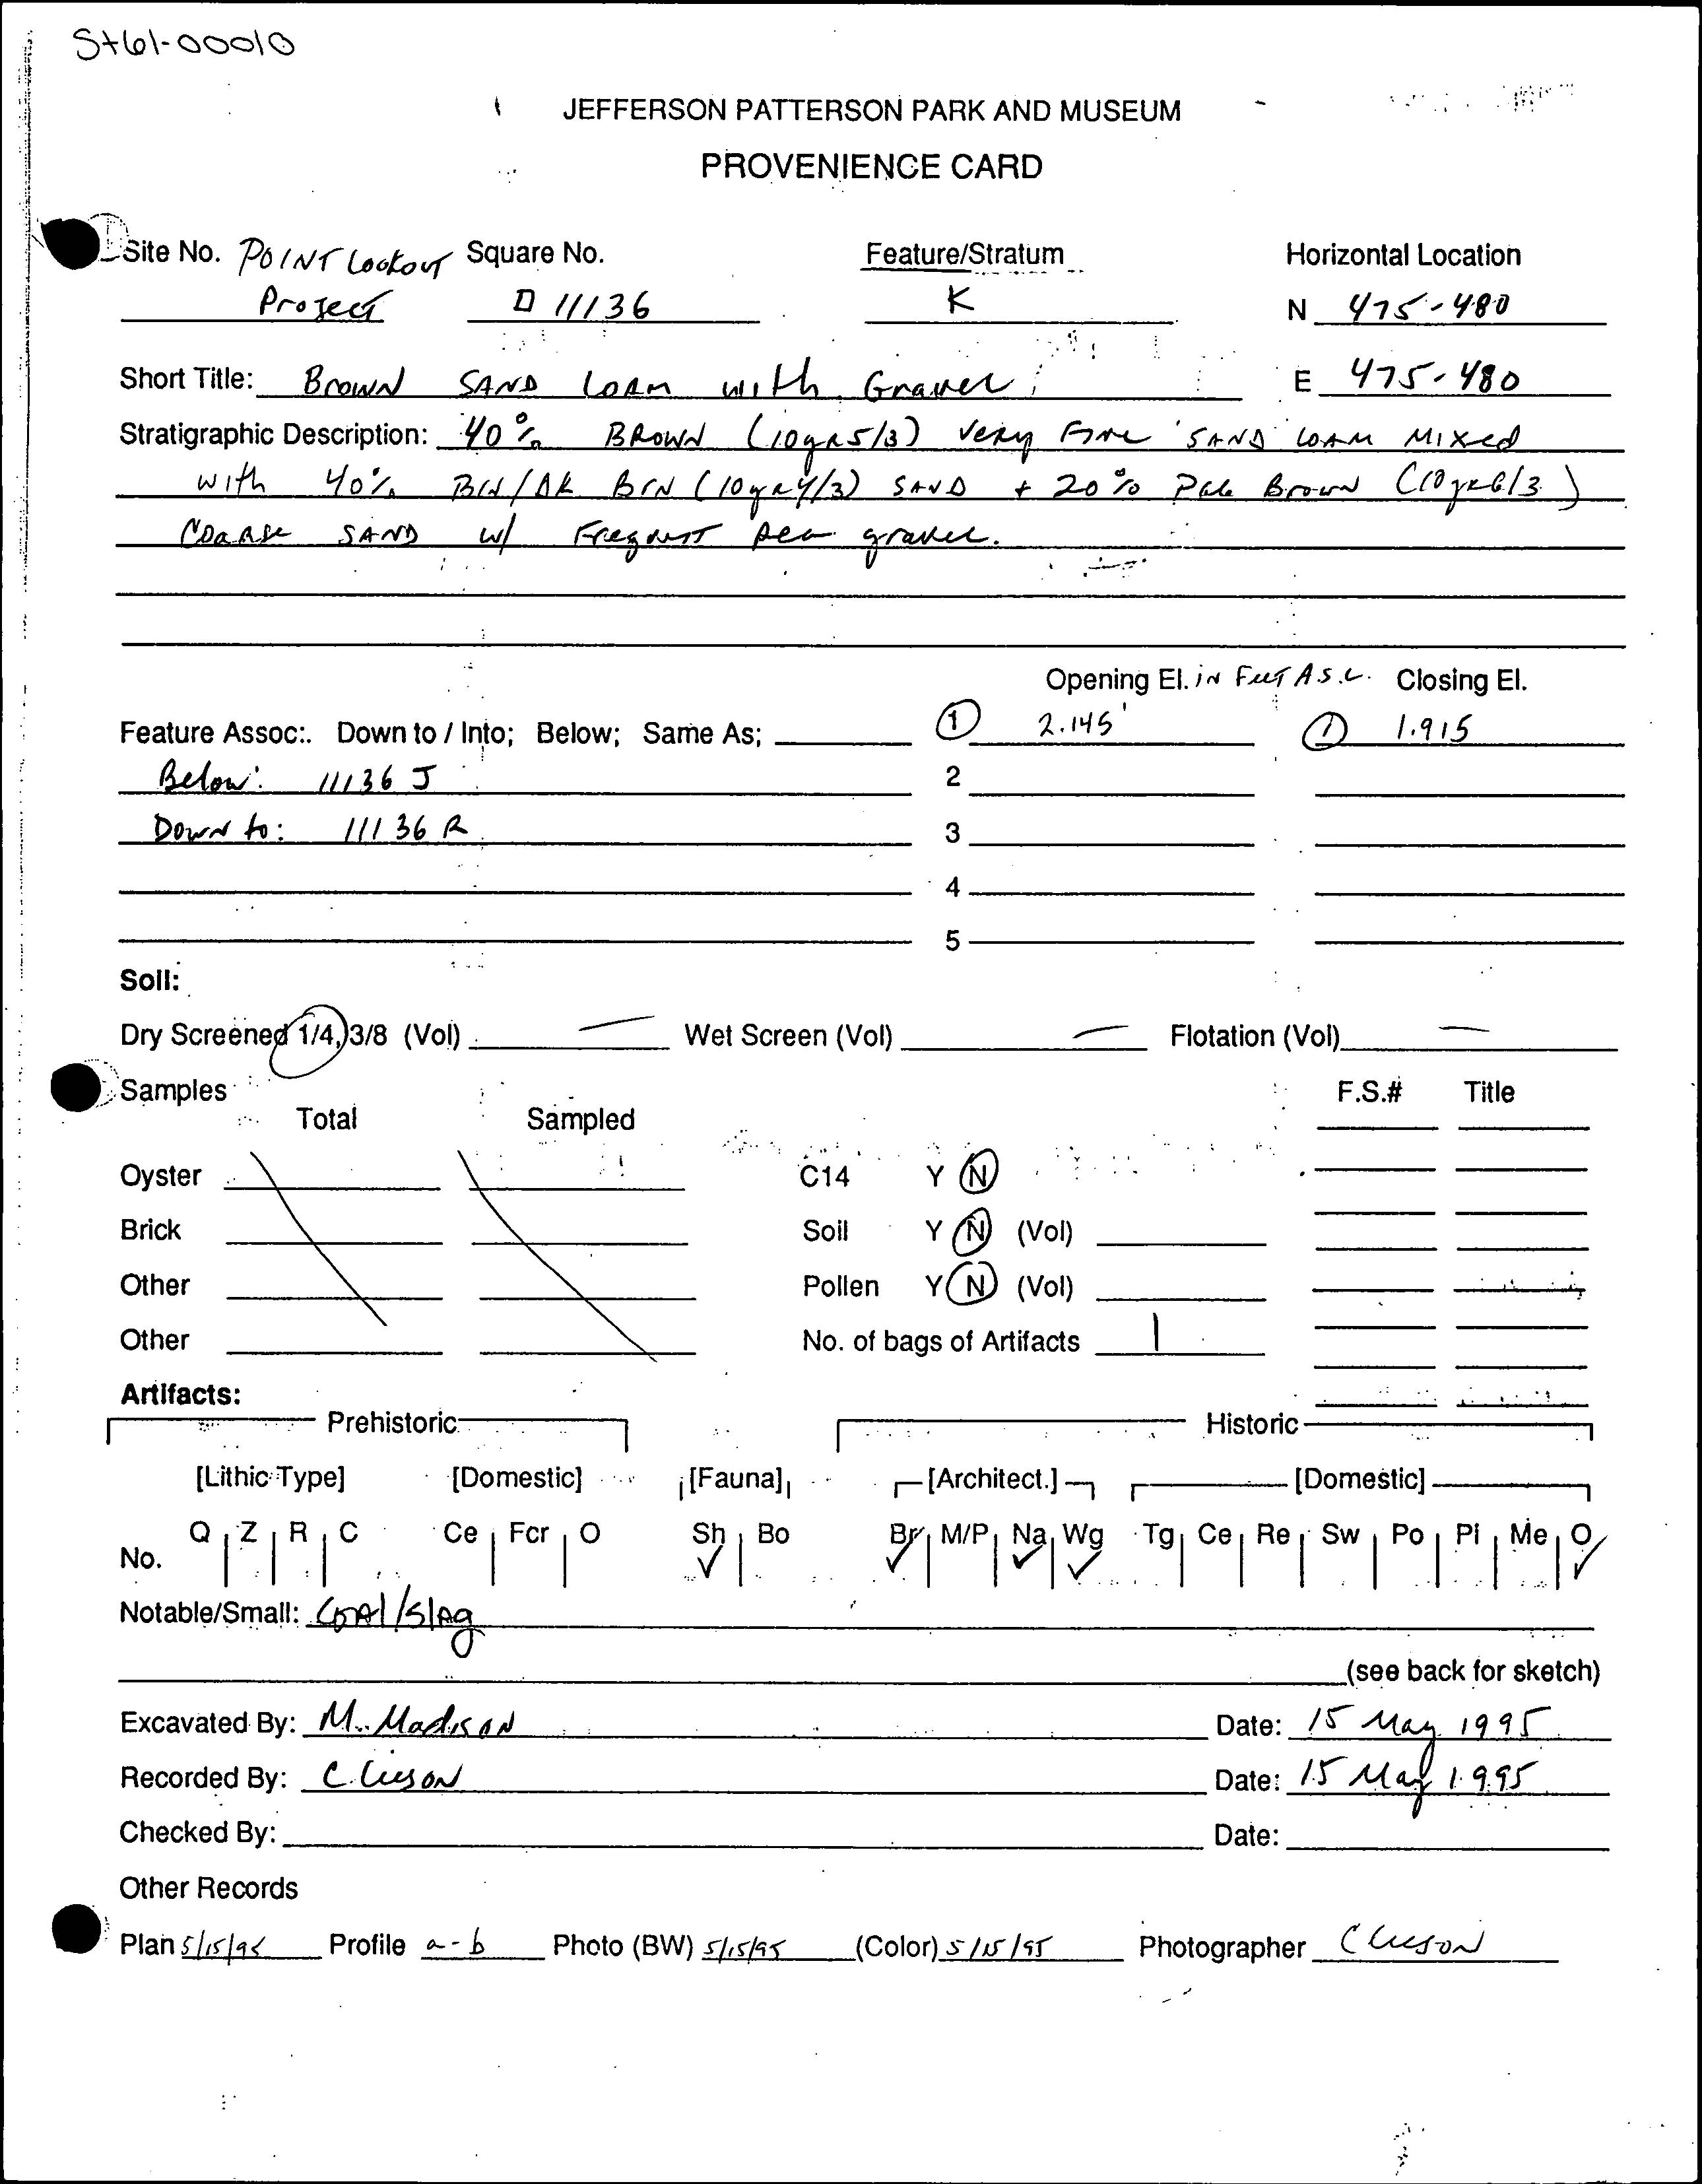 St61-00010
JEFFERSON PATTERSON PARK AND MUSEUM
PROVENIENCE CARD
Site No. POINT Lookout Square No. Feature/Stratum Horizontal Location
Project □ 11136 K N 475-480
Short Title: BROWN SAND LOAM with Gravel E 475-480
Stratigraphic Description: 40% BROWN (10yR5/3) Very Fine SAND LOAM Mixed
with 40% BRN/DK BRN (10yR4/3) SAND + 20% Pale Brown (10yR6/3)
Coarse SAND w/ Frequent pea gravel.
Opening El. in Feet A.S.L. Closing El.
Feature Assoc:. Down to / Into; Below; Same As; 1 2.145' 1 1.915
Below: 11136 J 2
Down to: 11136 R 3
4
5
Soil:
Dry Screened 1/4, 3/8 (Vol) — Wet Screen (Vol) — Flotation (Vol) —
Samples F.S.# Title
Total Sampled
Oyster C14 Y N
Brick Soil Y N (Vol)
Other Pollen Y N (Vol)
Other No. of bags of Artifacts 1
Artifacts:
Prehistoric Historic
[Lithic Type] [Domestic] [Fauna] [Architect.] [Domestic]
Q Z R C Ce Fcr O Sh Bo Br M/P Na Wg Tg Ce Re Sw Po Pi Me O
No. ✓ ✓ ✓ ✓ ✓
Notable/Small: Coal/slag
(see back for sketch)
Excavated By: M. Madison Date: 15 May 1995
Recorded By: C. Date: 15 May 1995
Checked By: Date:
Other Records
Plan 5/15/95 Profile a-b Photo (BW) 5/15/95 (Color) 5/15/95 Photographer C